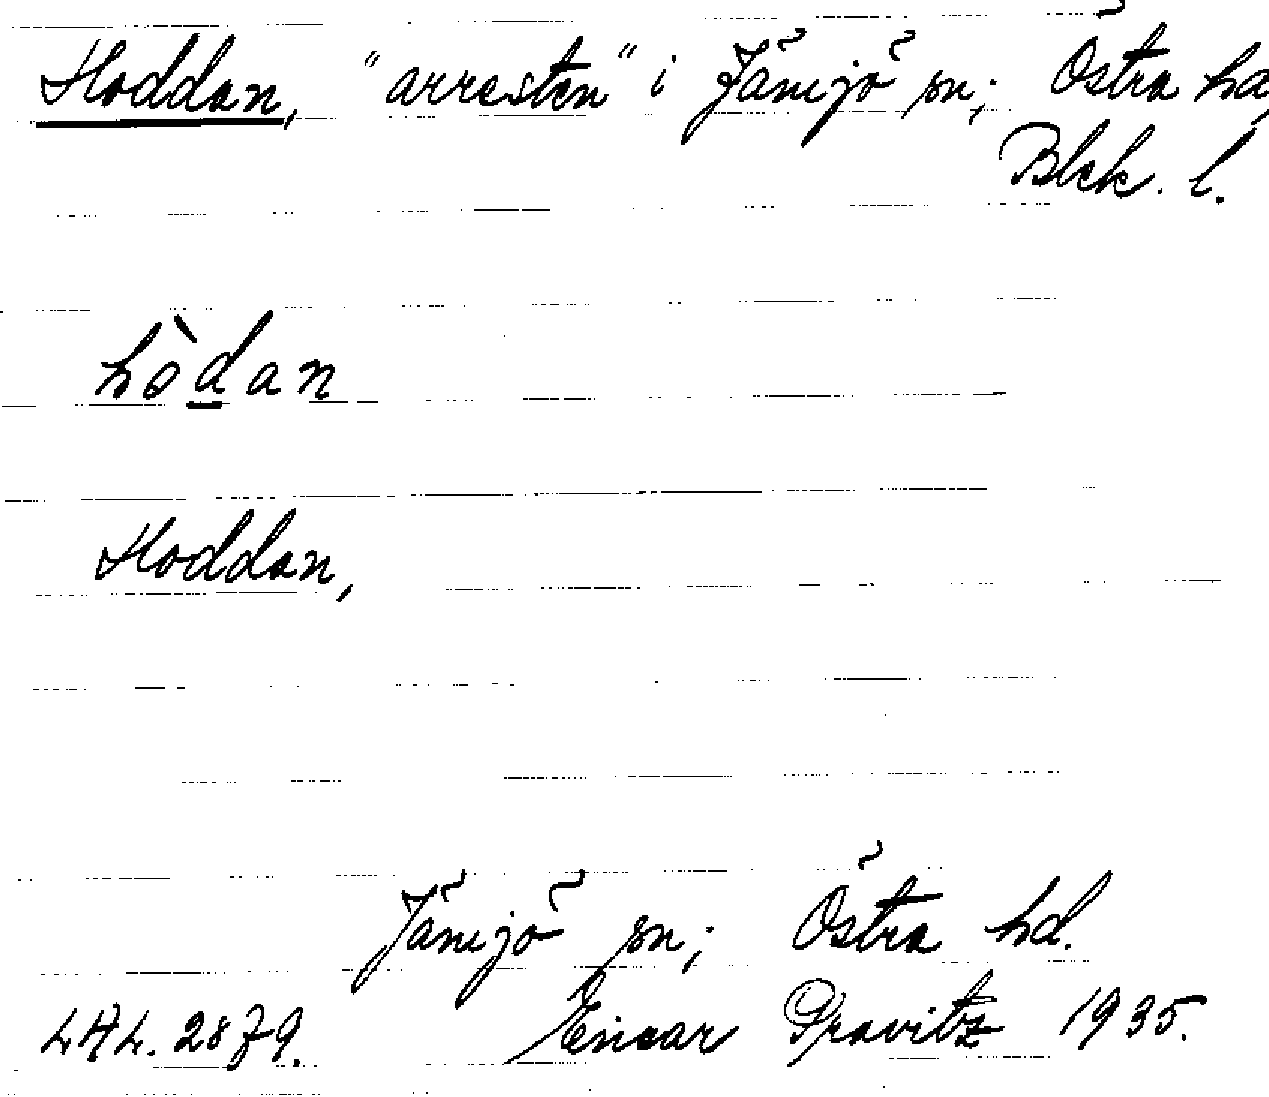 Hoddan, "arresten" i Jämjö sn; Östra hd,
Blek. l.
hòdan
Hoddan,
Jämjö sn; Östra hd.
LAL. 2879. Einar Pravitz 1935.